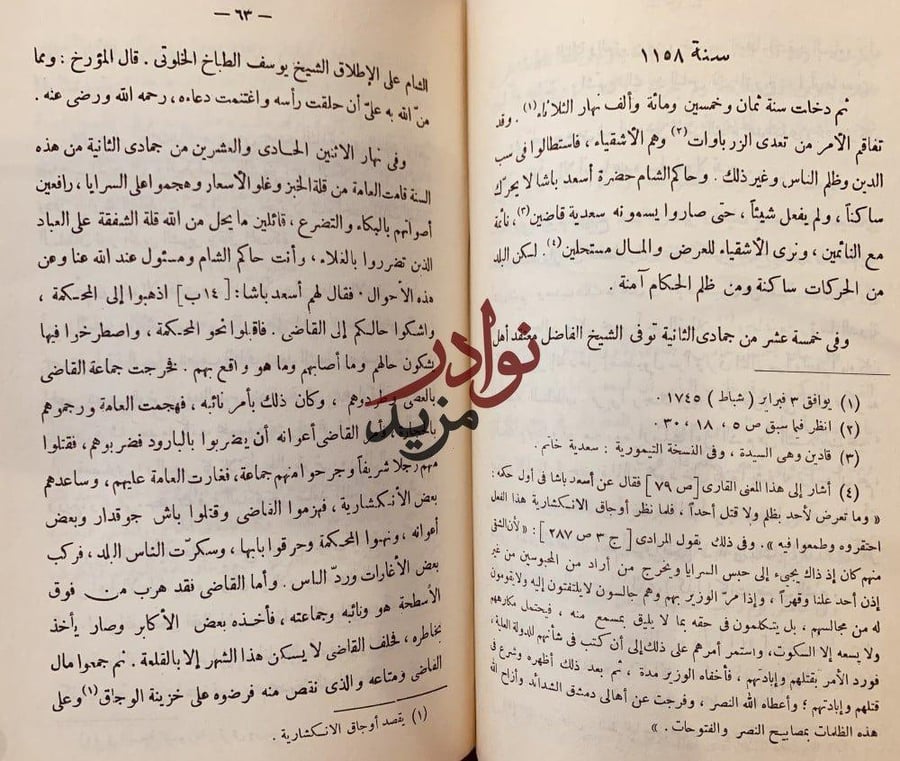 سنة ١١٥٨
ثم دخلت سنة ثمان وخمسين ومائة وألف نهار الثلاثاء (١). وقد
تفاقم الأمر من تعدى الزرباوات (٢) وهم الأشقياء ، فاستطالوا فى سب
الدين وظلم الناس وغير ذلك . وحاكم الشام حضرة أسعد باشا لا يحرّك
ساكناً ، ولم يفعل شيئاً ، حتى صاروا يسمونه سعدية قاضين (٣)، نائمة
مع النائمين ، ونرى الأشقياء للعرض والمال مستحلين (٤). لسكن البلد
من الحركات ساكنة ومن ظلم الحكام آمنة .
وفى خمسة عشر من جمادى الثانية توفى الشيخ الفاضل معتقد أهل
(١) يوافق ٣ فبراير ( شباط ) ١٧٤٥ .
(٢) انظر فيما سبق ص ٥ ، ١٨ ، ٣٠ .
(٣) قادين وهى السيدة ، وفى النسخة التيمورية : سعدية خانم .
(٤) أشار إلى هذا المعنى القارى [ ص ٧٩ ] فقال عن أسعد باشا فى أول حكمه :
« وما تعرض لأحد بظلم ولا قتل أحداً ، فلما نظر أوجاق الانكشارية هذا الفعل
احتقروه وطمعوا فيه » . وفى ذلك يقول المرادى [ ج ٣ ص ٢٨٧ ] : « لأن الشقى
منهم كان إذ ذاك يجىء إلى حبس السرايا ويخرج من أراد من المحبوسين من غير
إذن أحد علنا وقهراً ، وإذا مرّ الوزير بهم وهم جالسون لا يلتفتون إليه ولا يقومون
له من مجالسهم ، بل يتكلمون فى حقه بما لا يليق بمسمع منه ، فيحتمل مكارههم
ولا يسعه إلا السكوت، واستمر أمرهم على ذلك إلى أن كتب فى شأنهم للدولة العلية،
فورد الأمر بقتلهم وإبادتهم ، فأخفاه الوزير مدة ، ثم بعد ذلك أظهره وشرع فى
قتلهم وإبادتهم ؛ وأعطاه الله النصر ، وفرجت عن أهالى دمشق الشدائد وأزاح الله
هذه الظلمات بمصابيح النصر والفتوحات . »
— ٦٣ —
الشام على الإطلاق الشيخ يوسف الطباخ الخلوتى . قال المؤرخ : ومما
منّ الله به علىّ أن حلقت رأسه واغتنمت دعاءه ، رحمه الله ورضى عنه .
وفى نهار الاثنين الحادى والعشرين من جمادى الثانية من هذه
السنة قامت العامة من قلة الخبز وغلو الأسعار وهجموا على السرايا ، رافعين
أصواتهم بالبكاء والتضرع ، قائلين ما يحل من الله قلة الشفقة على العباد
الذين تضرروا بالغلاء ، وأنت حاكم الشام ومسئول عند الله عنا وعن
هذه الأحوال . فقال لهم أسعد باشا : [ ١٤ ب ] اذهبوا إلى المحكمة ،
واشكوا حالكم إلى القاضى . فأقبلوا نحو المحكمة ، واصطرخوا فيها
يشكون حالهم وما أصابهم وما هو واقع بهم . فخرجت جماعة القاضى
بالعصى وطردوهم ، وكان ذلك بأمر نائبه ، فهجمت العامة ورجموهم
القاضى أعوانه أن يضربوا بالبارود فضربوهم ، فقتلوا
منهم رجلا شريفاً وجرحوا منهم جماعة، فغارت العامة عليهم ، وساعدهم
بعض الأنكشارية ، فهزموا القاضى وقتلوا باش جوقدار وبعض
أعوانه ، ونهبوا المحكمة وحرقوا بابها ، وسكرّت الناس البلد ، فركب
بعض الأغارات وردّ الناس . وأما القاضى فقد هرب من فوق
الأسطحة هو ونائبه وجماعته ، فأخذه بعض الأكابر وصار يأخذ
بخاطره ، فحلف القاضى لا يسكن هذا الشهر إلا بالقلعة . ثم جمعوا مال
القاضى ومتاعه والذى نقص منه فرضوه على خزينة الوجاق (١) وعلى
(١) يقصد أوجاق الانكشارية .
نوادر
مزيد